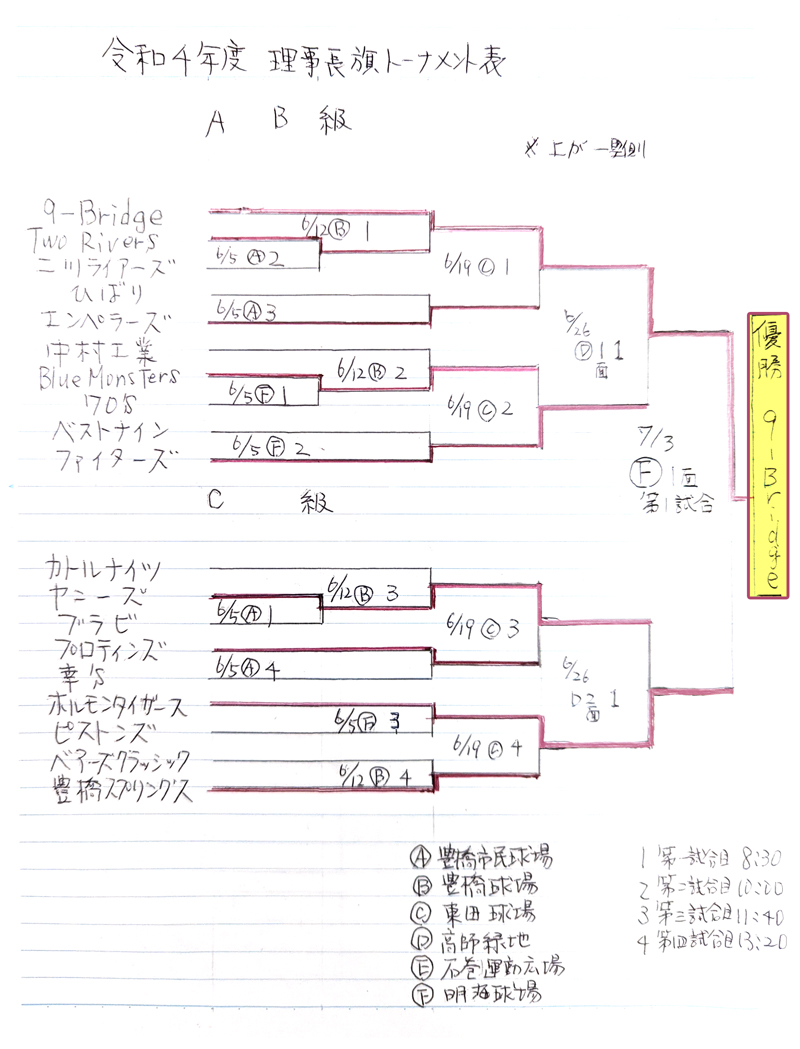 令和4年度 理事長旗トーナメント表
A B 級
※ 上が一塁側
9-Bridge
Two Rivers
6/12 Ⓑ 1
ニツライアーズ
6/5 Ⓐ 2
6/19 Ⓒ 1
ひばり
エンペラーズ
6/5 Ⓐ 3
中村工業
6/26 Ⓓ 1面 1
Blue Monsters
6/12 Ⓑ 2
70's
6/5 Ⓕ 1
6/19 Ⓒ 2
ベストナイン
ファイターズ
6/5 Ⓕ 2
7/3
Ⓕ 1面
第1試合
優勝 9-Bridge
C 級
カトルナイツ
ヤニーズ
6/12 Ⓑ 3
ブラビ
6/5 Ⓐ 1
6/19 Ⓒ 3
プロティンズ
幸's
6/5 Ⓐ 4
6/26 D2面 1
ホルモンタイガース
ピストンズ
6/5 Ⓕ 3
6/19 Ⓒ 4
ベアーズクラッシック
豊橋スプリングス
6/12 Ⓑ 4
Ⓐ 豊橋市民球場
Ⓑ 豊橋球場
Ⓒ 東田球場
Ⓓ 高師緑地
Ⓔ 石巻運動広場
Ⓕ 明海球場
1 第一試合目 8:30
2 第二試合目 10:00
3 第三試合目 11:40
4 第四試合目 13:20